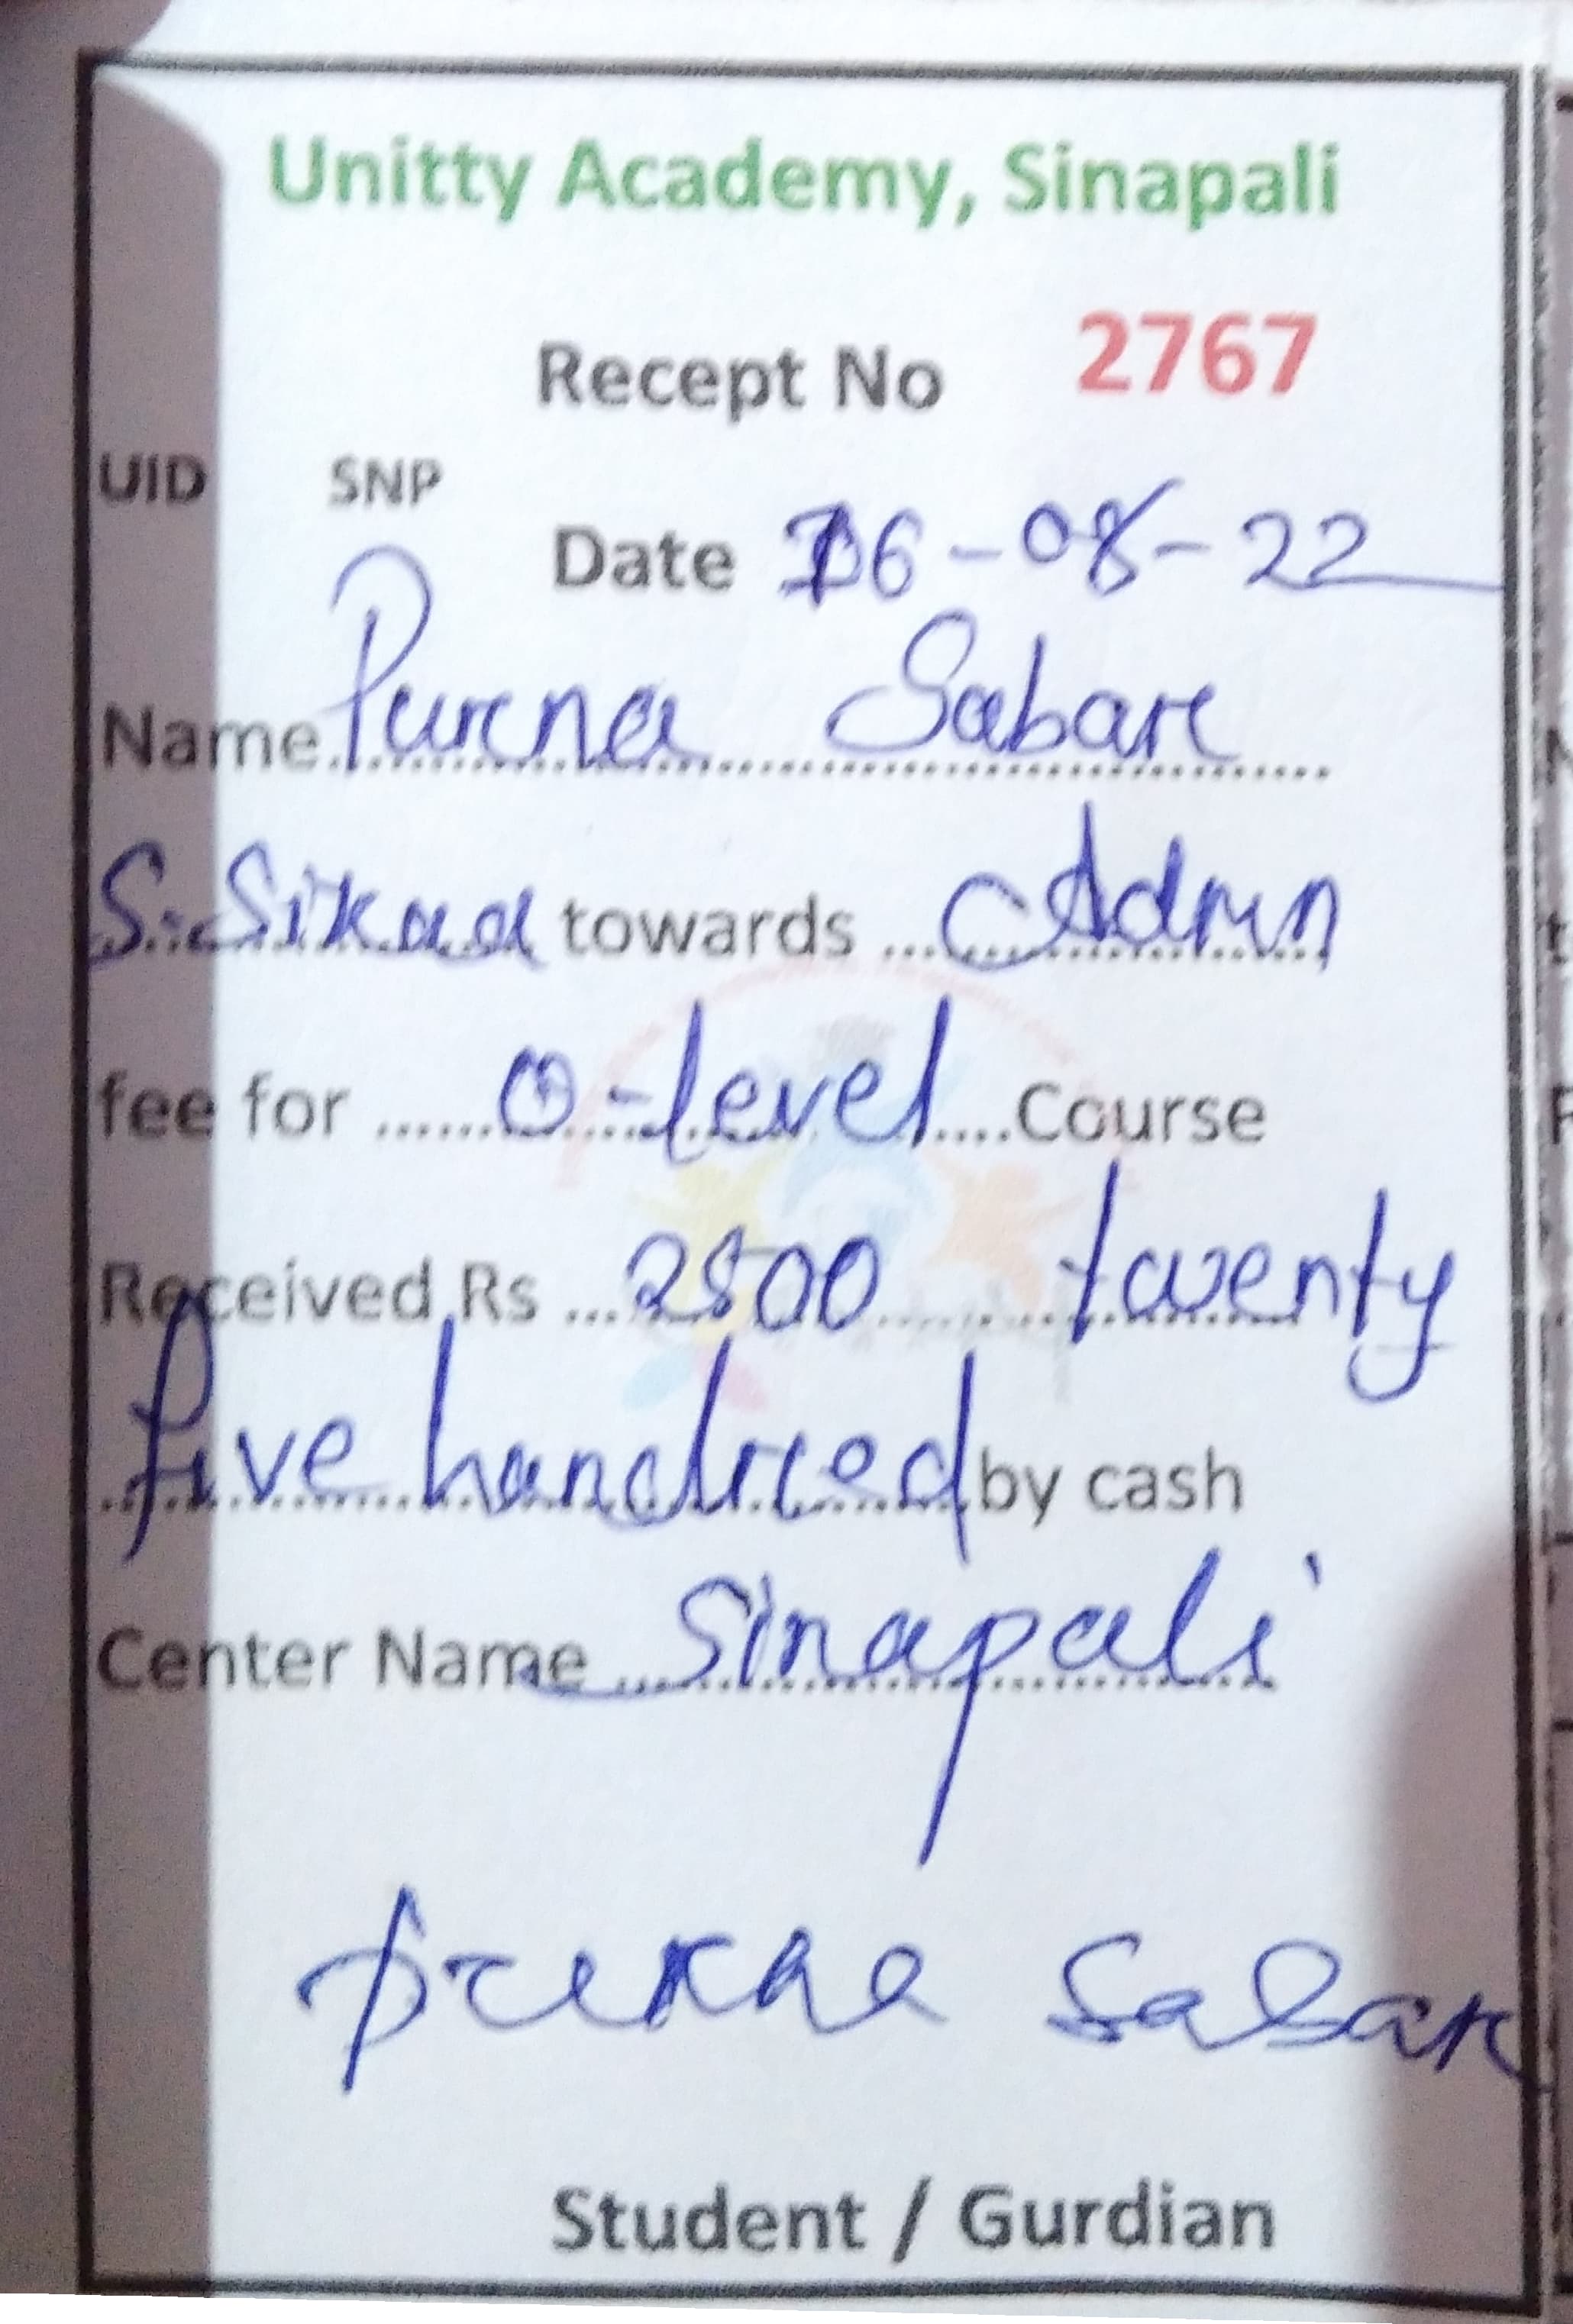 Unitty Academy, Sinapali
Recept No 2767
UID SNP
Date 06-08-22
Name Purna Sabar
S.Sikuan towards Admn
fee for ...... O-level .... Course
Received Rs ... 2500 twenty
five handred by cash
Center Name ... Sinapali
Purna Sabar
Student / Gurdian